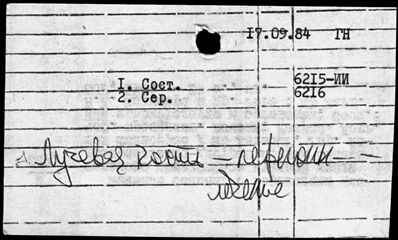 17.09.84 ГН
1. Сост. 6215-ИИ
2. Сер. 6216
Лучевая кость — переломы —
лечение